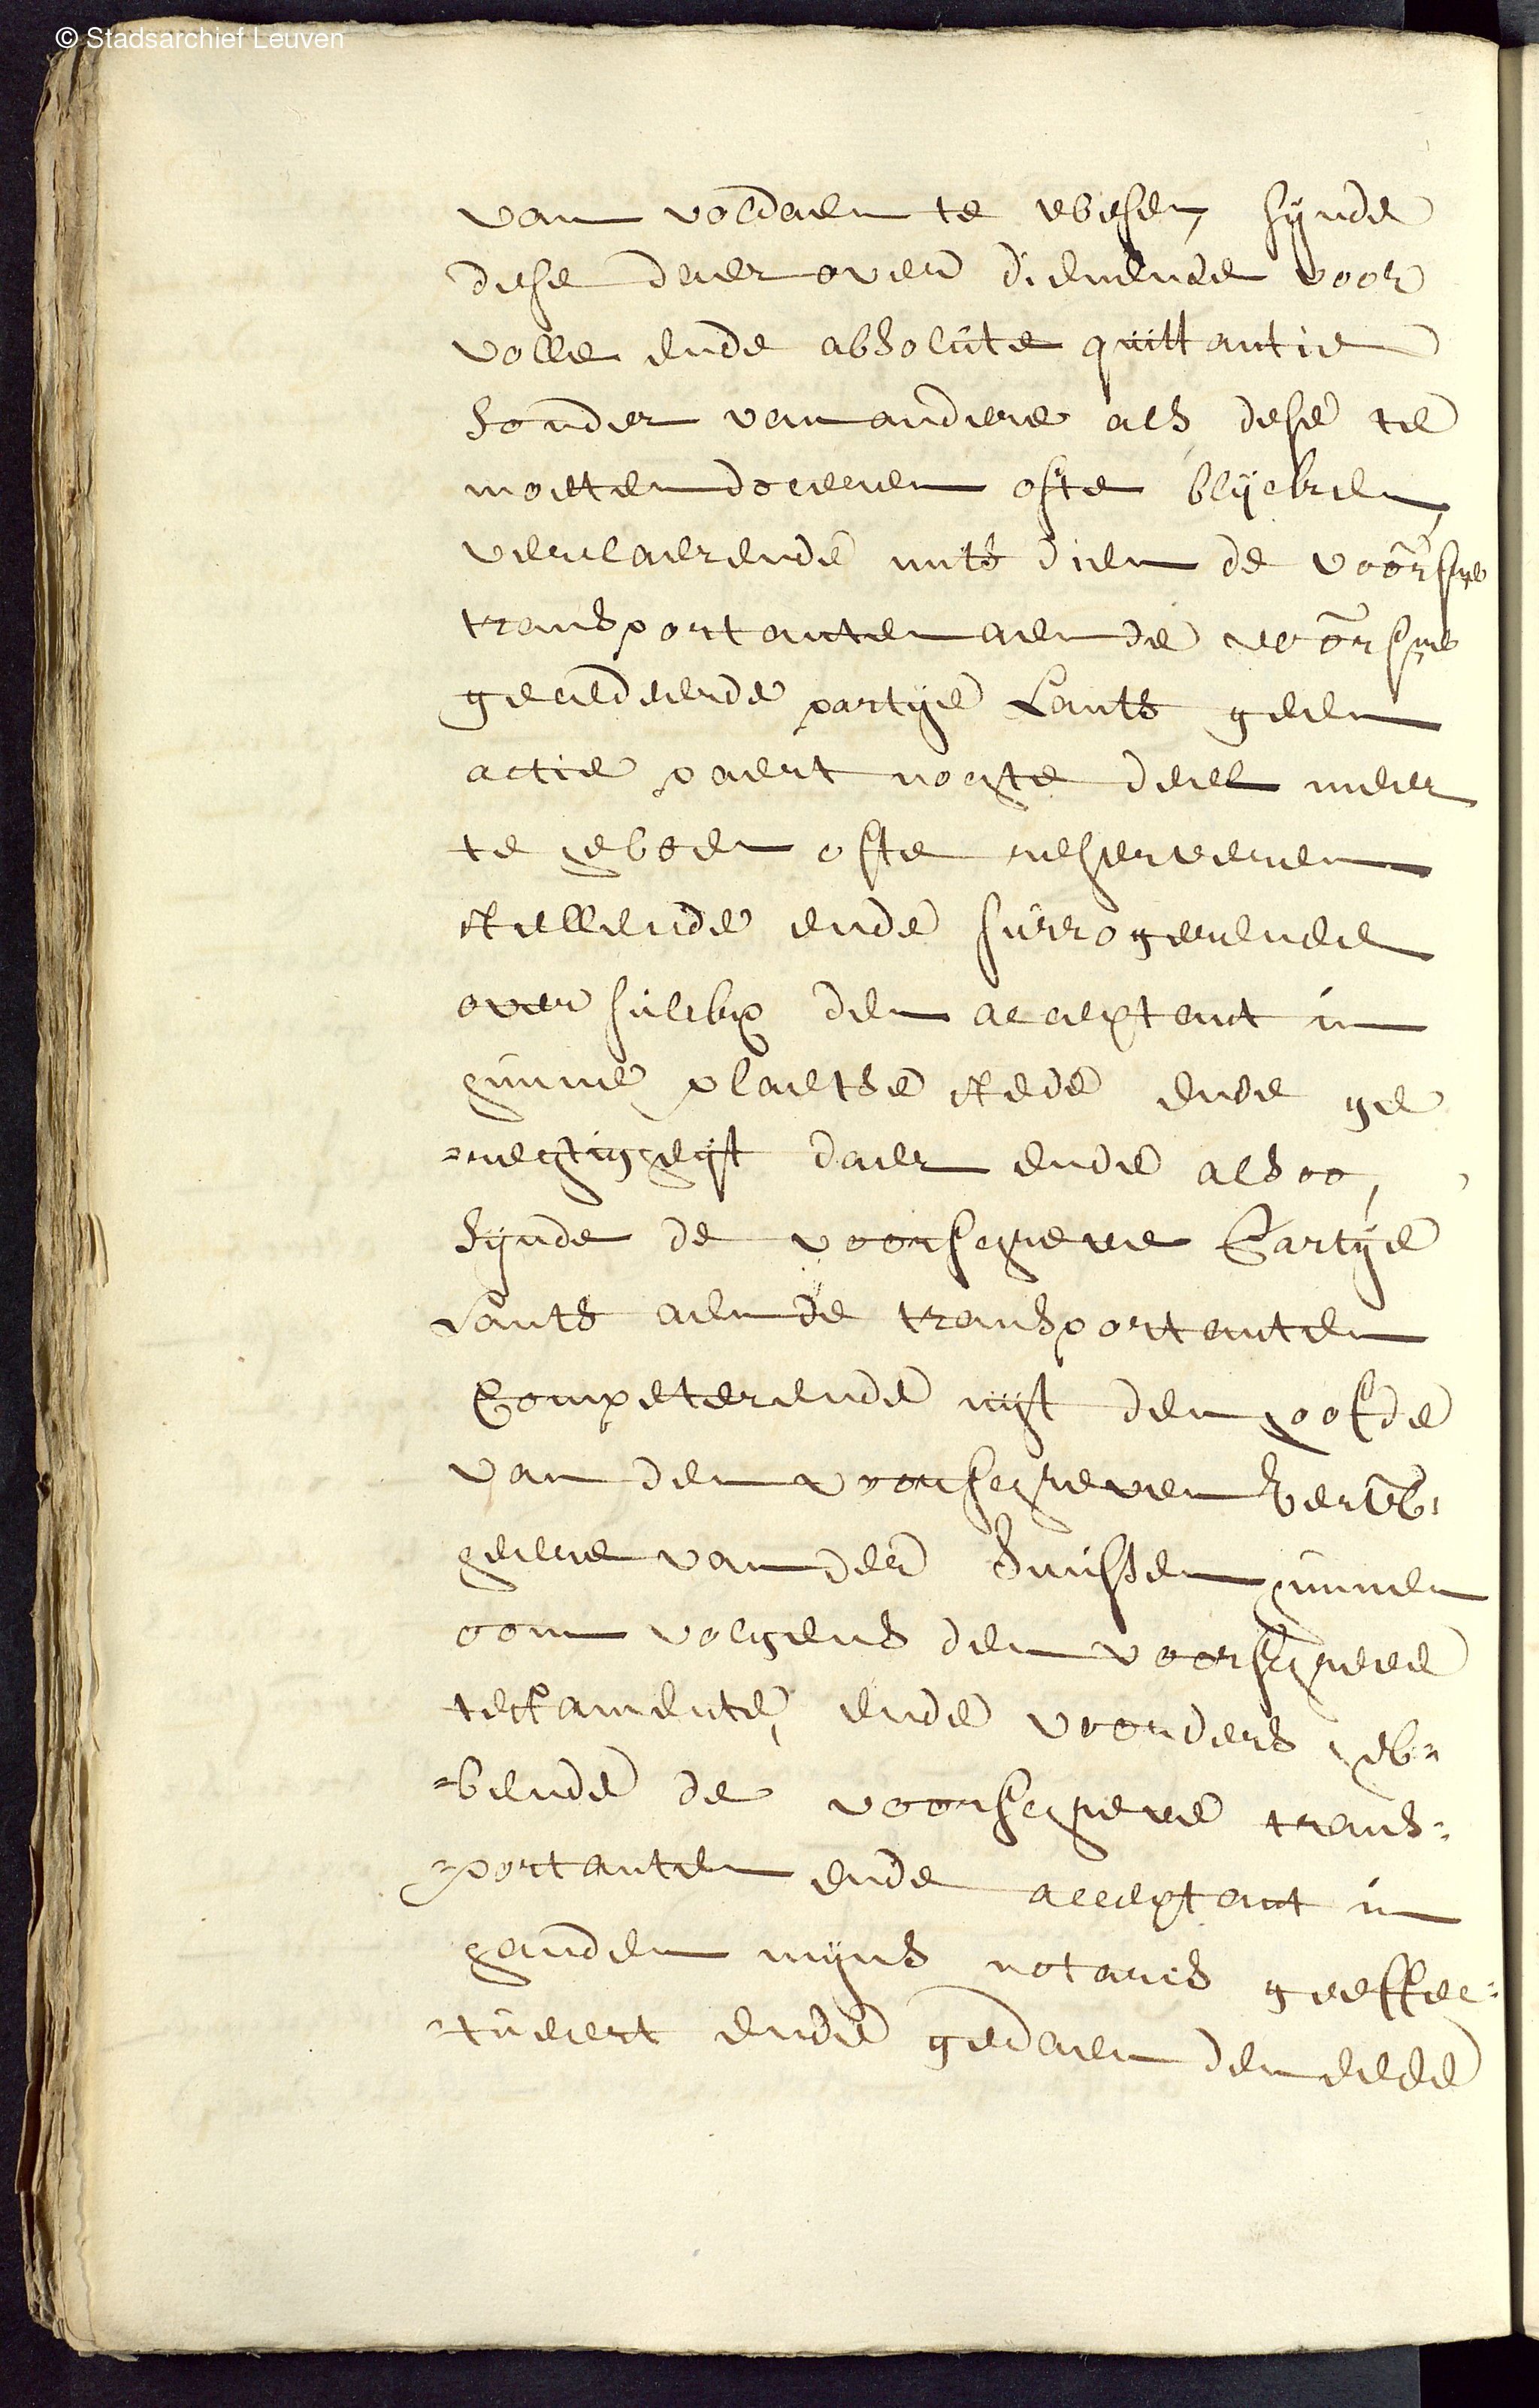 © Stadsarchief Leuven
van voldaen te wesen, sijnde
dese daer over dienende voor
volle ende absolute quittantie
sonder van andere als dese te
moeten doceren ofte blijcken,
verclaerende mits dien de voorsre
transportanten aen de voorsre
gecedeerde partije Lants geen
actie paert nogte deel meer
te hebben ofte reserveren
stellende ende surrogerende
over sulckx den acceptant in
hunne plaetse stede ende ge
=regtigheijt daer ende alsoo,
sijnde de voorschreve Partije
Lants aen de transportanten
Competerende uijt den hoofde
van den voorschreven
heere van der hunnen
oom volgens den voorschreve
testamente, ende voorders heb=
=bende de voorschreve trans=
=portanten ende acceptant in
handen mijns notaris geeffec=
=tueert ende gedaen den eede